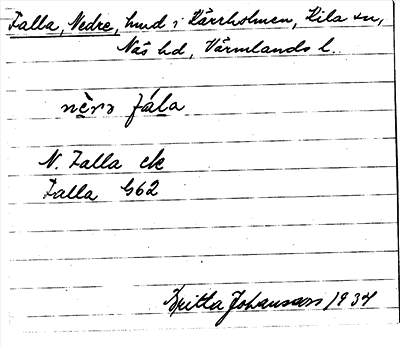 Falla, Nedre, hmd i Kärrholmen, Kila sn,
Näs hd, Värmlands l.
nèrə fála
N. Falla ek
Falla G62
Britta Johansson 1934